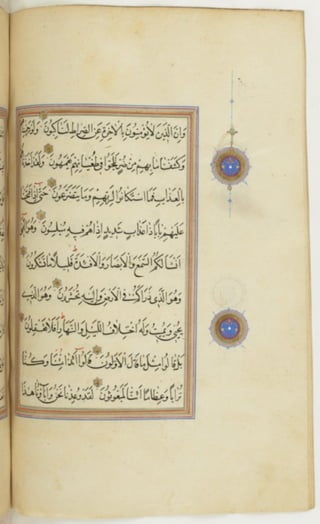 وَإِنَّ الَّذِينَ لَا يُؤْمِنُونَ بِالْآخِرَةِ عَنِ الصِّرَاطِ لَنَاكِبُونَ
وَكَشَفْنَا مَا بِهِمْ مِنْ ضُرٍّ لَلَجُّوا فِي طُغْيَانِهِمْ يَعْمَهُونَ وَلَقَدْ
بِالْعَذَابِ فَمَا اسْتَكَانُوا لِرَبِّهِمْ وَمَا يَتَضَرَّعُونَ حَتَّى إِذَا
عَلَيْهِمْ بَابًا ذَا عَذَابٍ شَدِيدٍ إِذَا هُمْ فِيهِ مُبْلِسُونَ وَهُوَ
أَنْشَأَ لَكُمُ السَّمْعَ وَالْأَبْصَارَ وَالْأَفْئِدَةَ قَلِيلًا مَا تَشْكُرُونَ
وَهُوَ الَّذِي ذَرَأَكُمْ فِي الْأَرْضِ وَإِلَيْهِ تُحْشَرُونَ وَهُوَ الَّذِي
يُحْيِي وَيُمِيتُ وَلَهُ اخْتِلَافُ اللَّيْلِ وَالنَّهَارِ أَفَلَا تَعْقِلُونَ
بَلْ قَالُوا مِثْلَ مَا قَالَ الْأَوَّلُونَ قَالُوا أَإِذَا مِتْنَا وَكُنَّا
تُرَابًا وَعِظَامًا أَإِنَّا لَمَبْعُوثُونَ لَقَدْ وُعِدْنَا نَحْنُ وَآبَاؤُنَا هَذَا